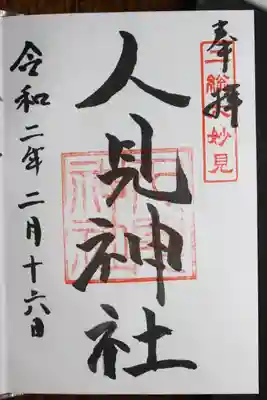 奉拝
妙見
人見神社
令和二年二月十六日